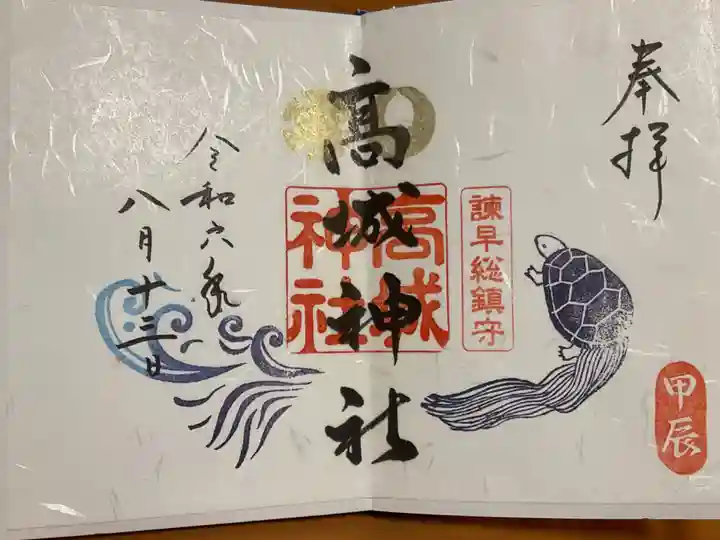 奉拝
甲辰
諫早総鎮守
髙城神社
高城
神社
令和六年
八月十三日